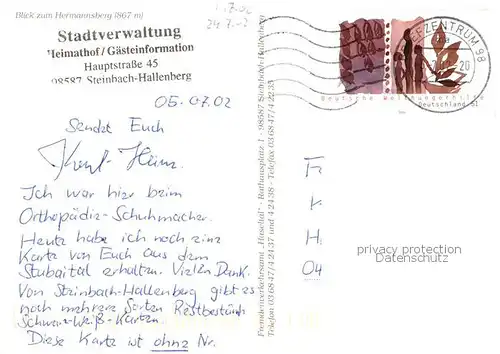 Blick zum Hermannsberg (867 m)
Stadtverwaltung
Heimathof / Gästeinformation
Hauptstraße 45
98587 Steinbach-Hallenberg
05.07.02
Sendet Euch
Ich war hier beim
Orthopädie-Schuhmacher.
Heute habe ich noch eine
Karte von Euch aus dem
Stubaital erhalten. Vielen Dank.
Von Steinbach-Hallenberg gibt es
noch mehrere Sorten Restbestände
Schwarz-Weiß-Karten.
Diese Karte ist ohne Nr.
Fremdenverkehrsamt „Haseltal“ · Rathausplatz 1 · 98587 Steinbach-Hallenberg
Telefon 03 68 47/4 24 37 und 4 24 38 · Telefax 03 68 47/4 22 35
BRIEFZENTRUM 98
20
Deutsche Welthungerhilfe
Deutschland 51
F
K
H
04
privacy protection
Datenschutz